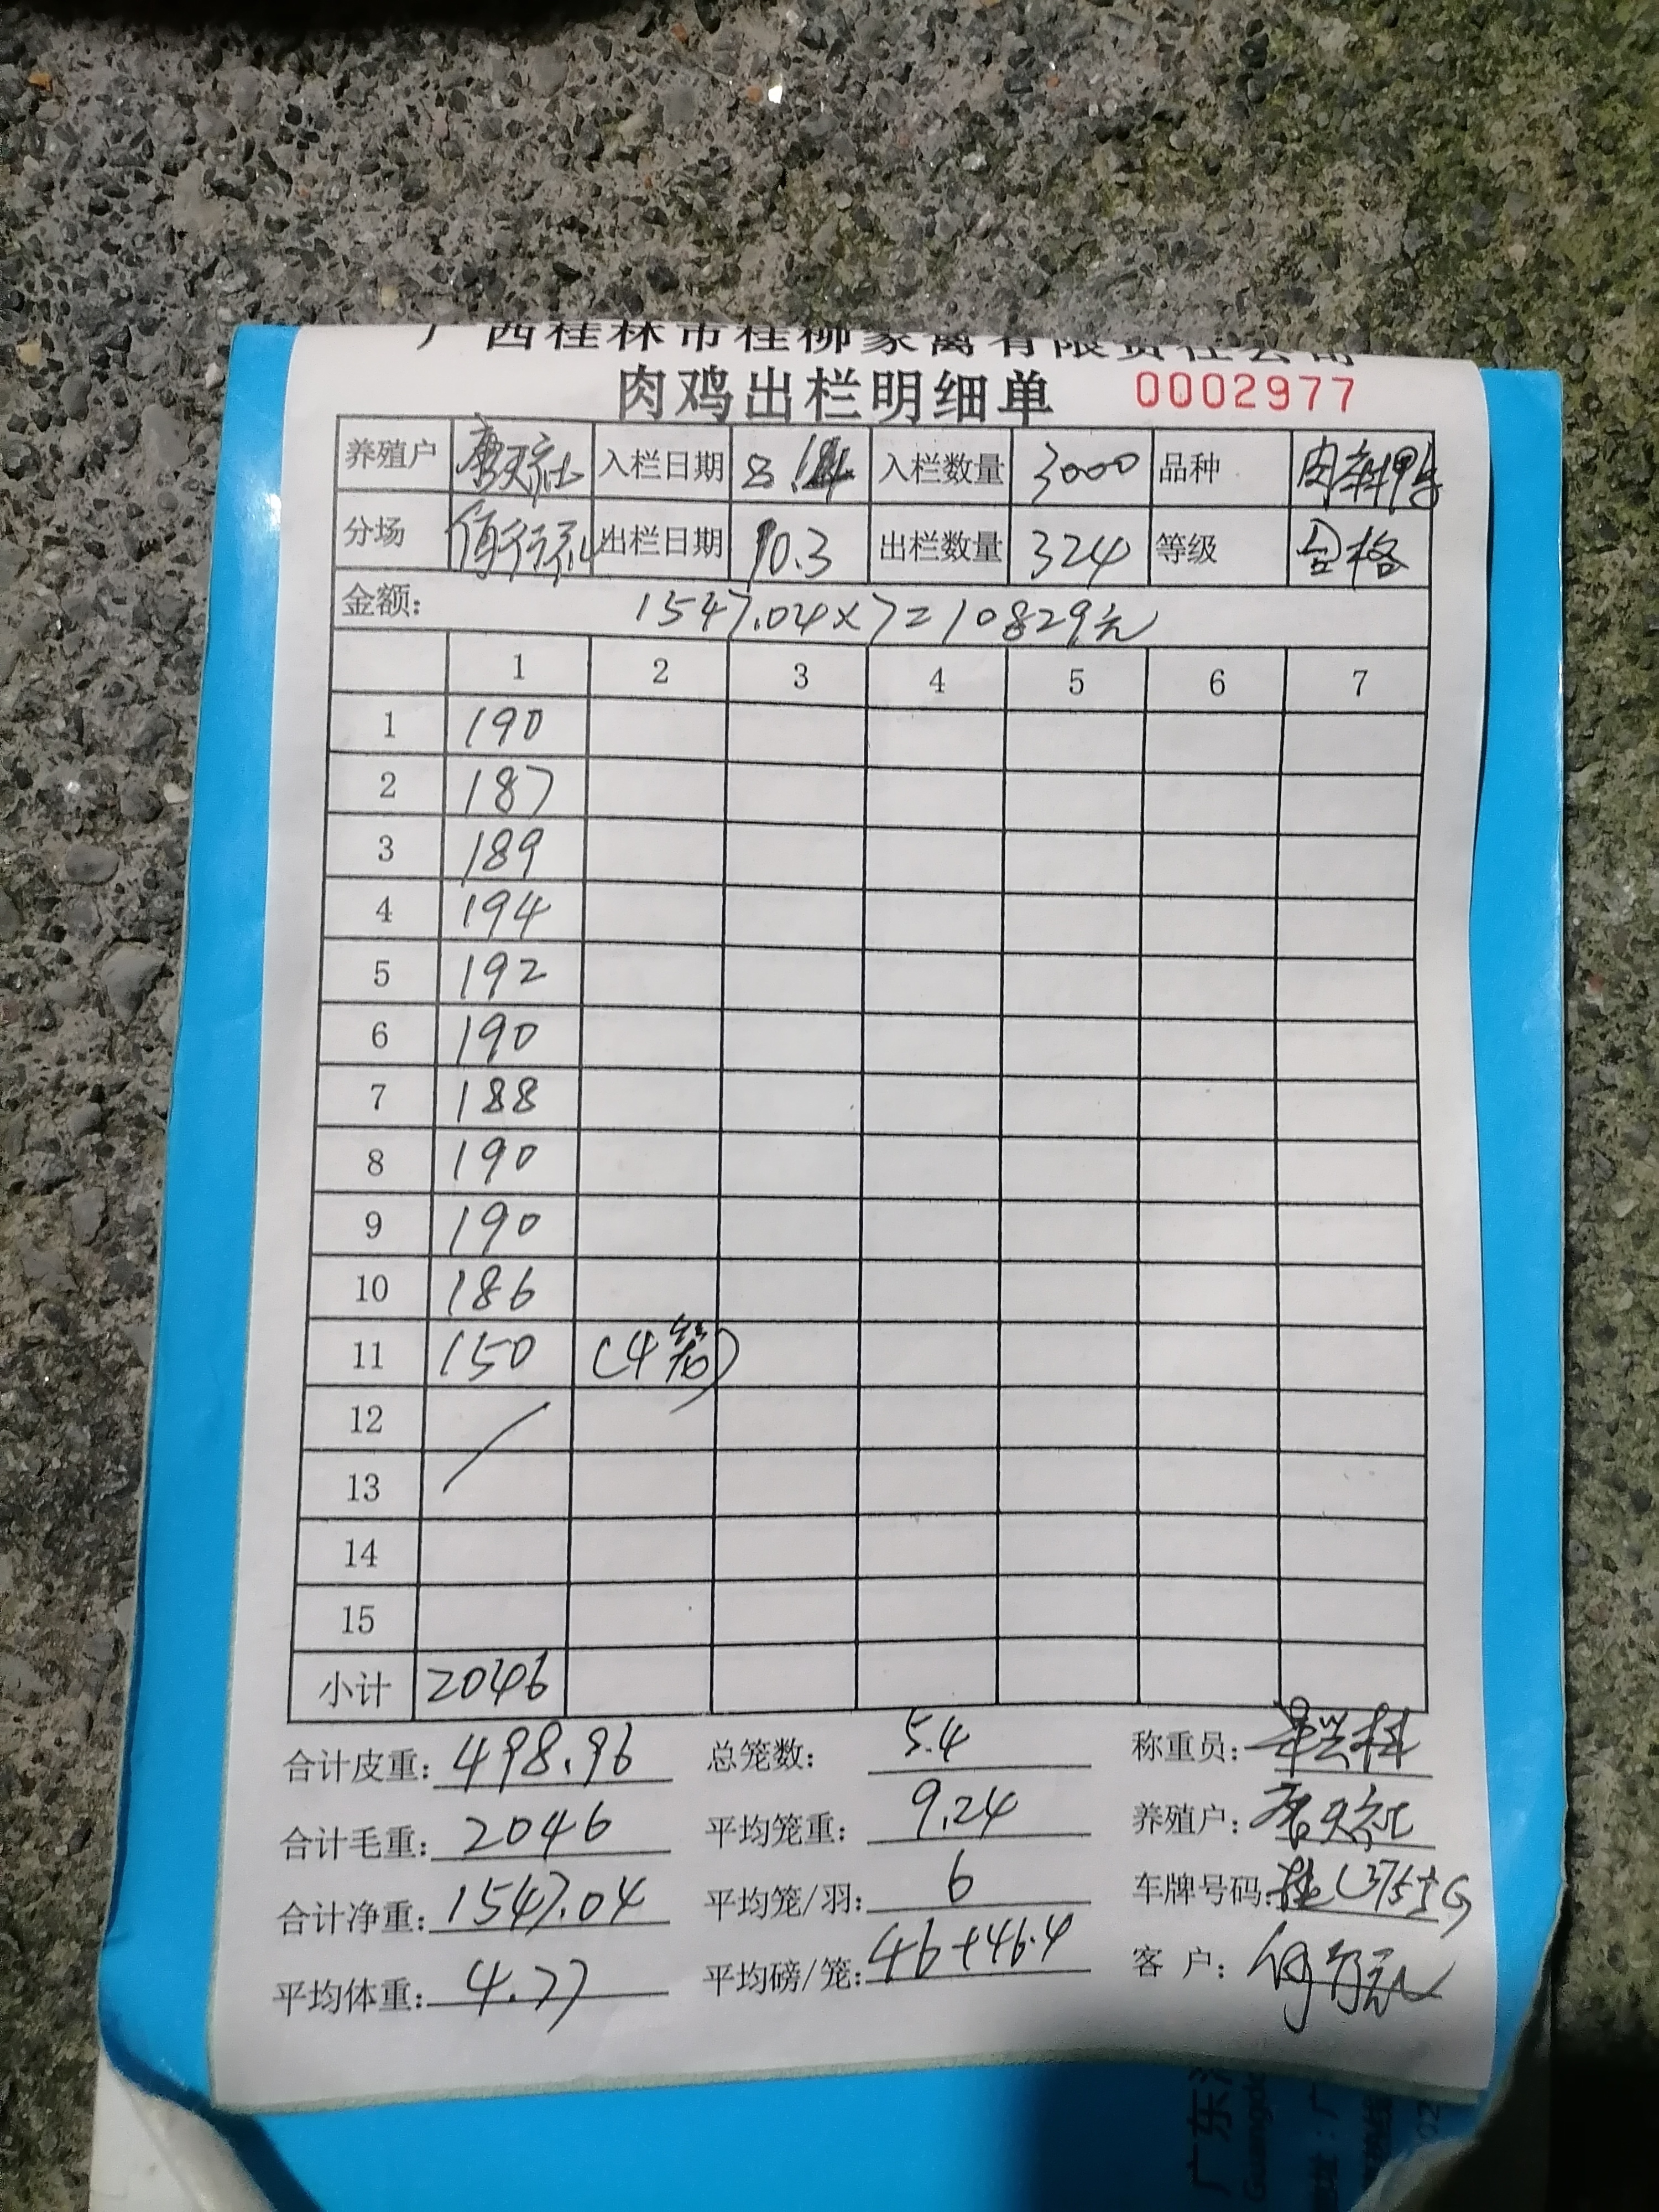 广西桂林市桂柳家禽有限责任公司
肉鸡出栏明细单 0002977
养殖户 入栏日期 入栏数量 3000 品种
分场 出栏日期 10.3 出栏数量 324 等级 合格
金额: 1547.04×7=10829元
1 2 3 4 5 6 7
1 190
2 187
3 189
4 194
5 192
6 190
7 188
8 190
9 190
10 186
11 150 (4笼)
12
13
14
15
小计 2046
合计皮重: 498.96 总笼数: 54 称重员:
合计毛重: 2046 平均笼重: 9.24 养殖户:
合计净重: 1547.04 平均笼/羽: 6 车牌号码:
平均体重: 4.77 平均磅/笼: 46+46.4 客户:
广东
Guangdo